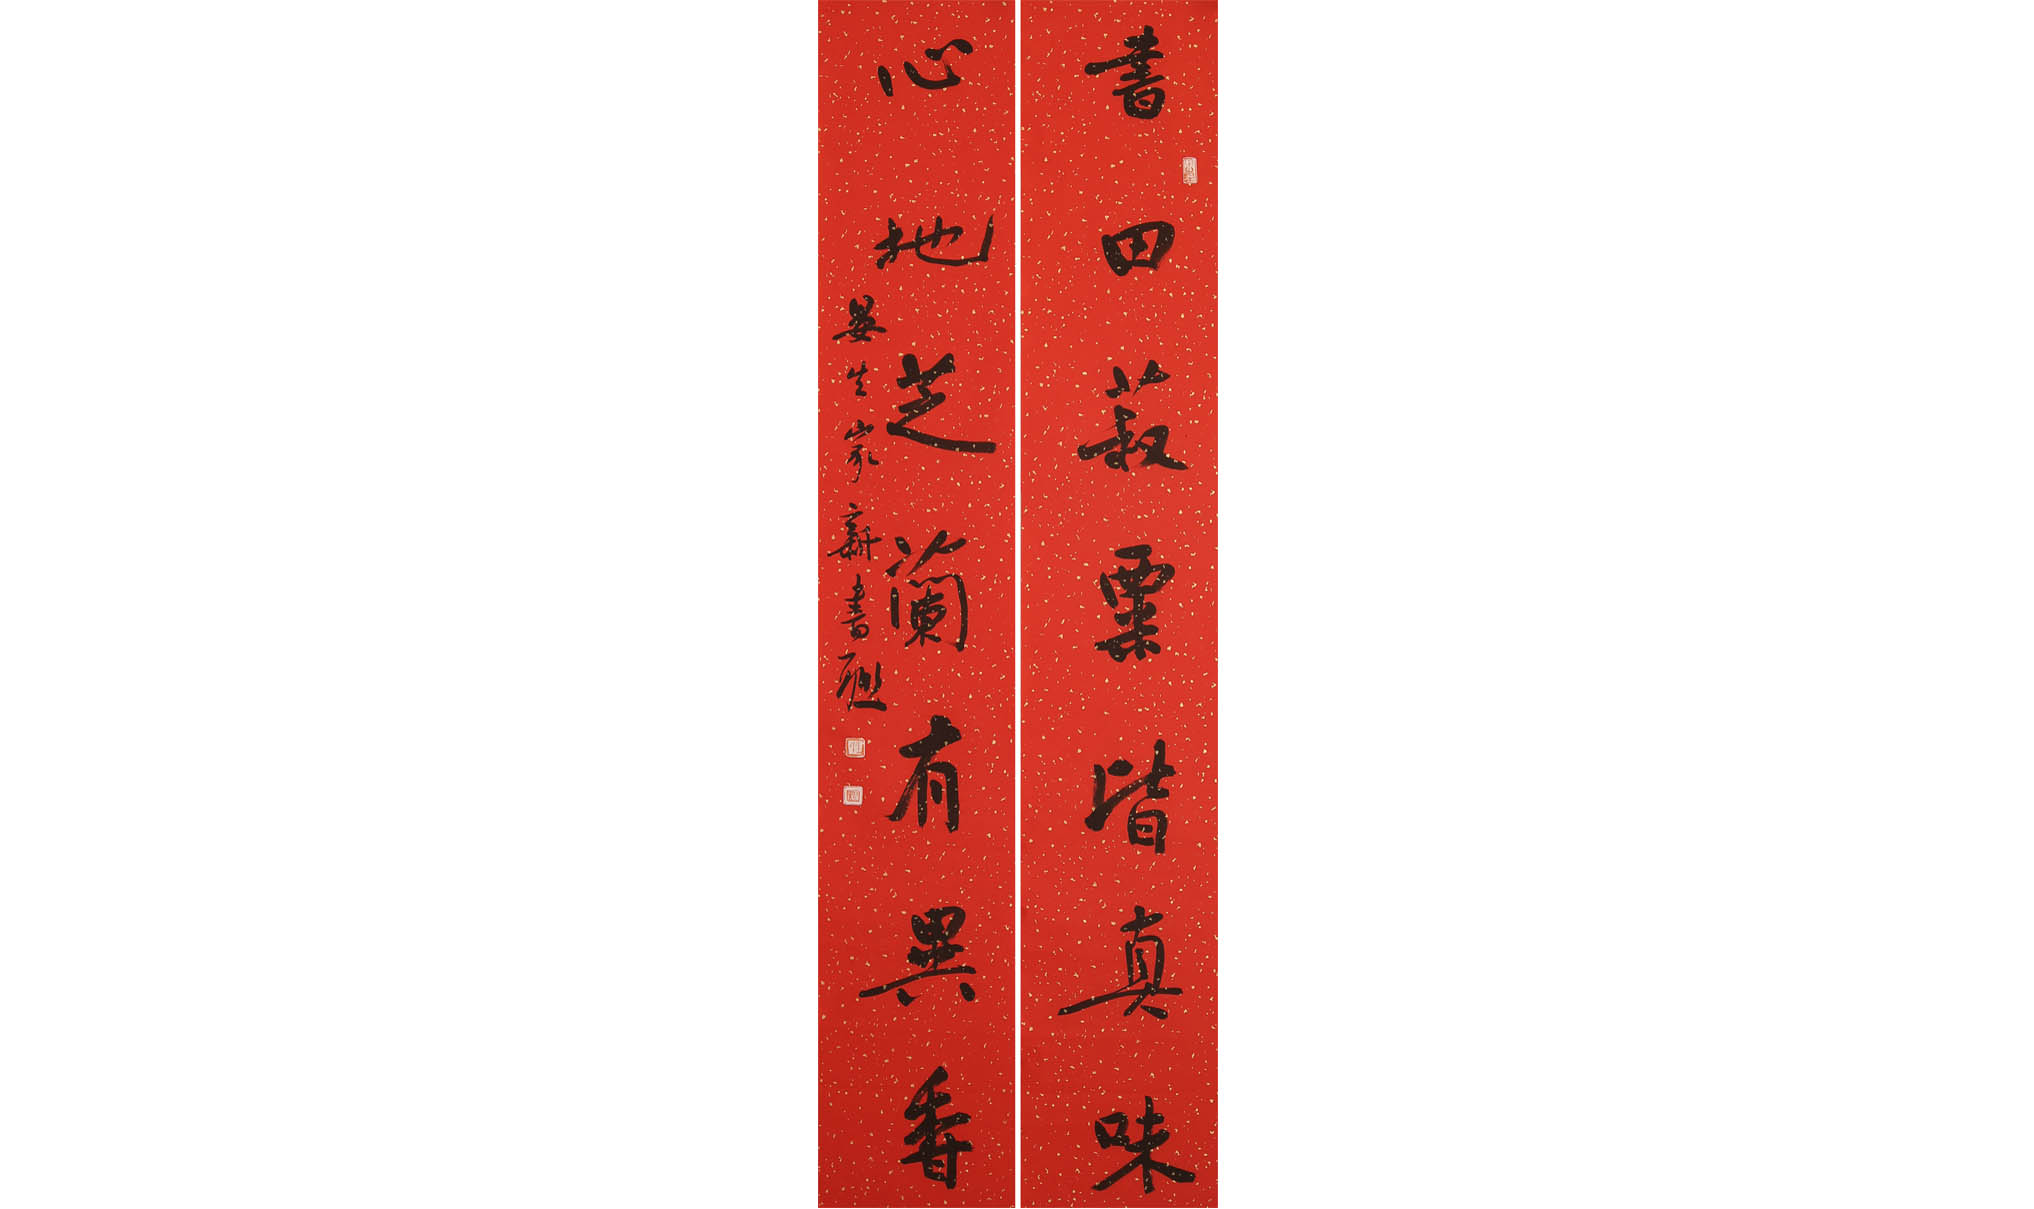 書田菽粟皆真味
心地芝蘭有異香
晏生家新書聯